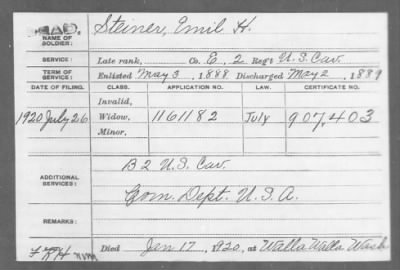 DEAD.
NAME OF SOLDIER: Steiner, Emil H.
SERVICE: Late rank, Co. E, 2 Reg't U.S. Cav.
TERM OF SERVICE: Enlisted May 3, 1888 Discharged May 2, 1889
DATE OF FILING. CLASS. APPLICATION NO. LAW. CERTIFICATE NO.
Invalid,
1920 July 26 Widow, 1161182 July 907,403
Minor,
ADDITIONAL SERVICES: B 2 U.S. Cav.
Com. Dept. U.S.A.
REMARKS:
Died Jan 17, 1920, at Walla Walla Wash